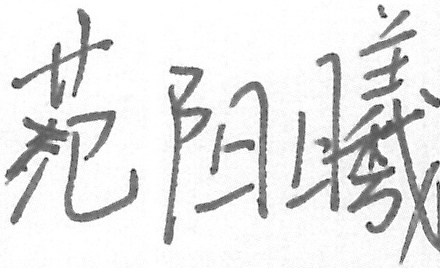 范阳曦